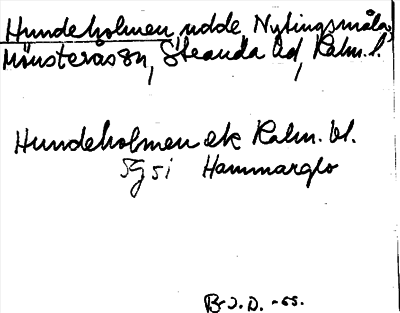 Hundeholmen, udde, Nytingsmåla,
Mönsterås sn, Stranda hd, Kalm. l.
Hundeholmen ek Kalm. bl.
5g 5i Hammarglo
B-J.D. -65.